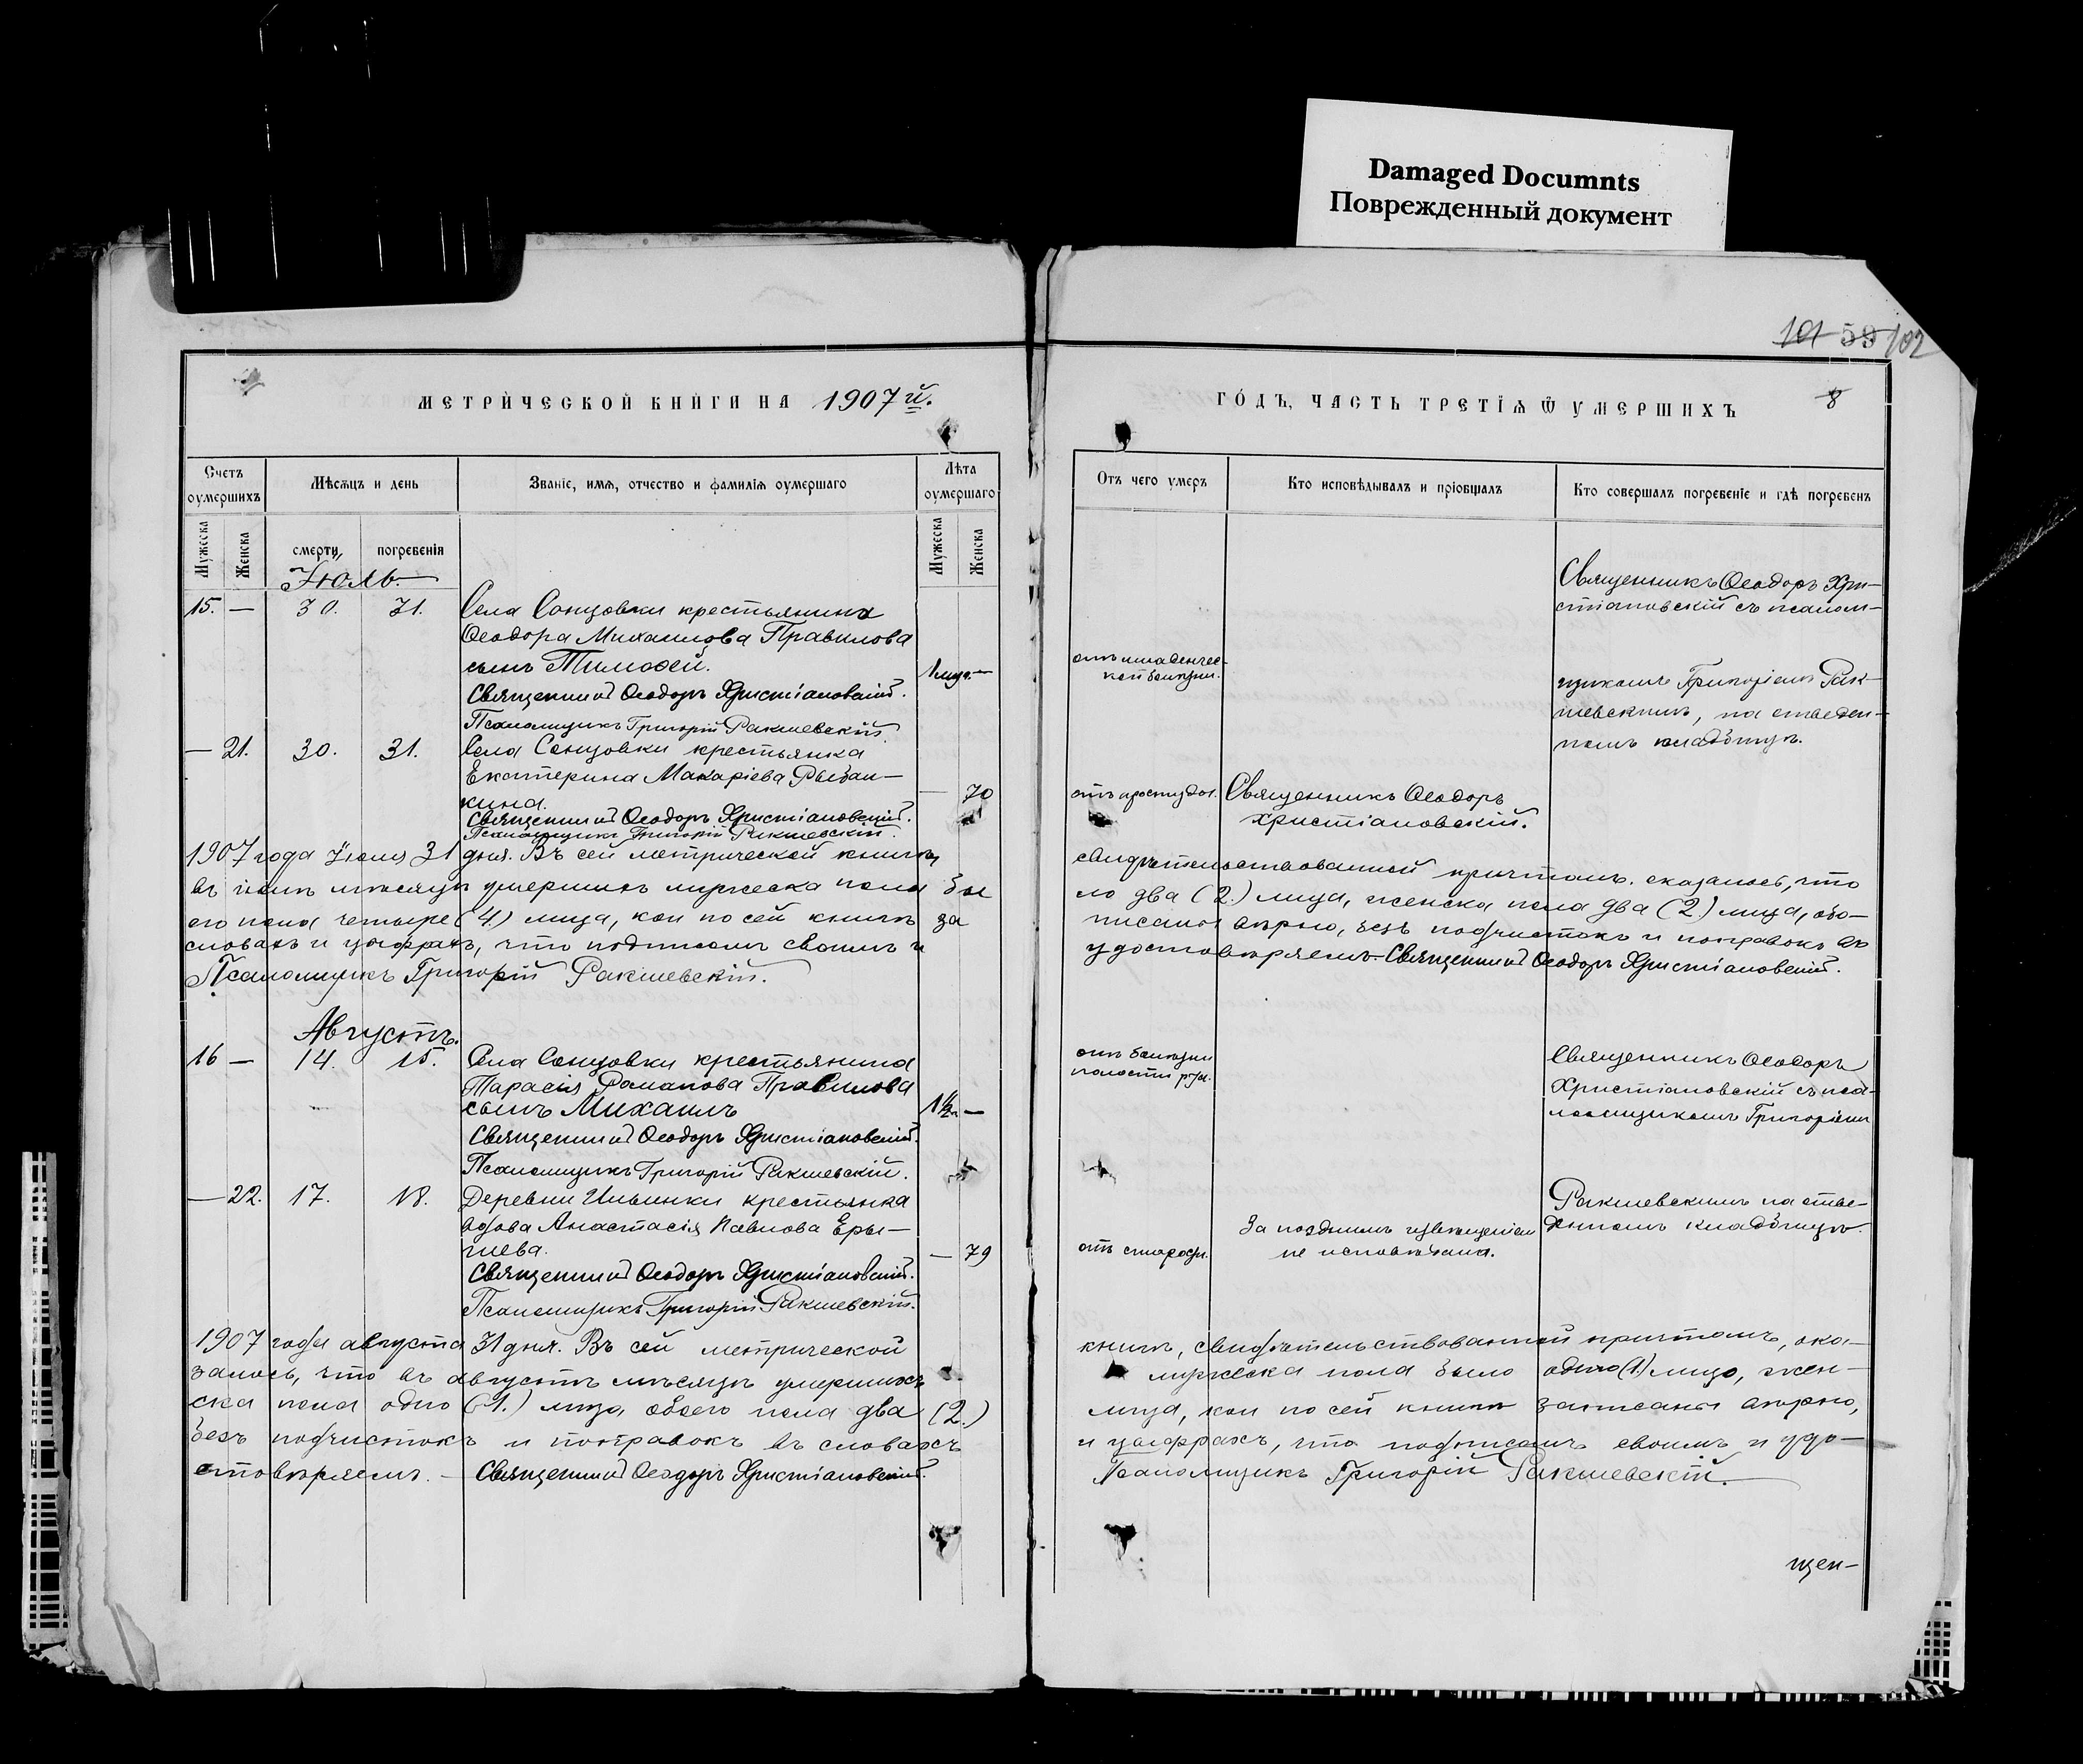 Damaged Documnts
Поврежденный документ
101 59 102
МЕТРИЧЕСКОЙ КНИГИ НА 1907 й.
ГОДЪ, ЧАСТЬ ТРЕТІѦ Ѿ УМЕРШИХЪ
8
Счетъ оумершихъ
Мѣсѧцъ и день
Званіе, имѧ, отчество и фамиліѧ оумершаго
Лѣта оумершаго
Отъ чего умеръ
Кто исповѣдывалъ и пріобщалъ
Кто совершалъ погребеніе и гдѣ погребенъ
Мужеска
Женска
смерти
погребенія
Мужеска
Женска
Іюль.
15. — 30. 31. Села Сонцовки крестьянина
Ѳеодора Михаилова Правилова
сынъ Тимоѳей.
1 мѣс. —
Священникъ Ѳеодоръ Христіановскій.
Псаломщикъ Григорій Ракшевскій.
отъ младенчес-
кой болѣзни.
Священникъ Ѳеодоръ Хри-
стіановскій съ псалом-
щикомъ Григоріемъ Рак-
шевскимъ, на отведен-
номъ кладбищѣ.
— 21. 30. 31. Села Сонцовки крестьянка
Екатерина Макаріева Рыбал-
кина.
— 70
Священникъ Ѳеодоръ Христіановскій.
Псаломщикъ Григорій Ракшевскій.
отъ простуды.
Священникъ Ѳеодоръ
Христіановскій.
1907 года Іюля 31 дня. Въ сей метрической книгѣ, свидѣтельствованной причтомъ, оказалось, что
въ іюлѣ мѣсяцѣ умершихъ мужеска пола бы ло два (2.) лица, женска пола два (2.) лица, обо-
его пола четыре (4.) лица, кои по сей книгѣ за писаны вѣрно, безъ подчистокъ и поправокъ въ
словахъ и цыфрахъ, что подписомъ своимъ и удостовѣряемъ. Священникъ Ѳеодоръ Христіановскій.
Псаломщикъ Григорій Ракшевскій.
Августъ.
16 — 14. 15. Села Сонцовки крестьянина
Тарасія Романова Правилова
сынъ Михаилъ
1½ —
Священникъ Ѳеодоръ Христіановскій.
Псаломщикъ Григорій Ракшевскій.
отъ болѣзни
полости рта.
Священникъ Ѳеодоръ
Христіановскій съ пса-
ломщикомъ Григоріемъ
Ракшевскимъ на отве-
денномъ кладбищѣ.
— 22. 17. 18. Деревни Ильинки крестьянка
вдова Анастасія Павлова Еры-
— 79
Священникъ Ѳеодоръ Христіановскій.
Псаломщикъ Григорій Ракшевскій.
отъ старости.
За позднимъ извѣщеніемъ
не исповѣдана.
1907 года августа 31 дня. Въ сей метрической книгѣ, свидѣтельствованной причтомъ, ока-
залось, что въ августѣ мѣсяцѣ умершихъ мужеска пола было одно (1) лицо, жен-
ска пола одно (1.) лицо, обоего пола два (2.) лица, кои по сей книгѣ записаны вѣрно,
безъ подчистокъ и поправокъ въ словахъ и цыфрахъ, что подписомъ своимъ и удо-
стовѣряемъ. — Священникъ Ѳеодоръ Христіановскій. Псаломщикъ Григорій Ракшевскій.
щен-